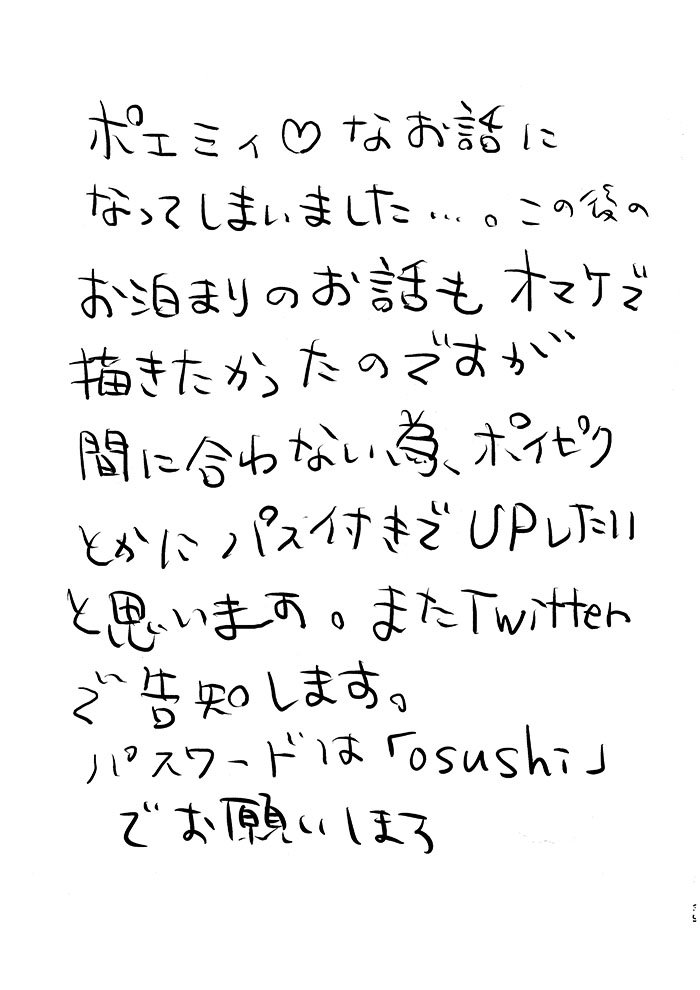 ポエミィ♡なお話に
なってしまいました…。この後の
お泊まりのお話もオマケで
描きたかったのですが
間に合わない為、ポイピク
とかにパス付きでUPしたい
と思います。またTwitter
で告知します。
パスワードは「osushi」
でお願いしまろ